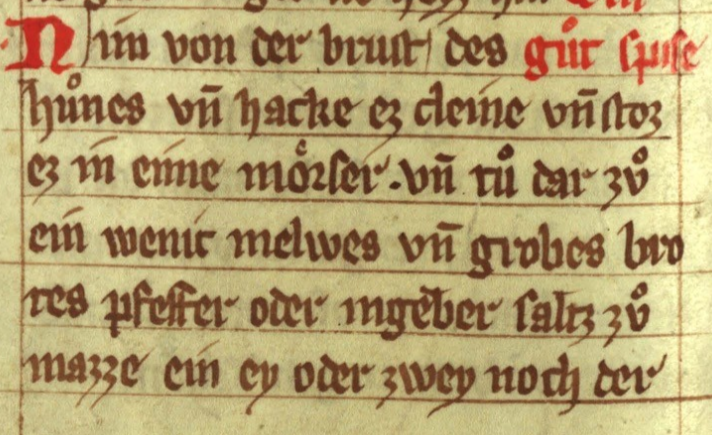 Nim von der brust des gůt spise
hůnes vn̄ hacke ez cleine vn̄ stoz
ez in eime mo᷎rser. vn̄ tů dar zů
ein wenic melwes vn̄ grobes bro
tes pfeffer oder ingeber saltz zů
mazze ein ey oder zwey noch der